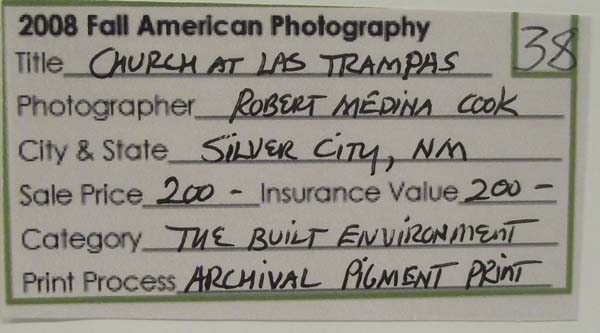 2008 Fall American Photography 38
Title CHURCH AT LAS TRAMPAS
Photographer ROBERT MEDINA COOK
City & State SILVER CITY, NM
Sale Price 200 - Insurance Value 200 -
Category THE BUILT ENVIRONMENT
Print Process ARCHIVAL PIGMENT PRINT